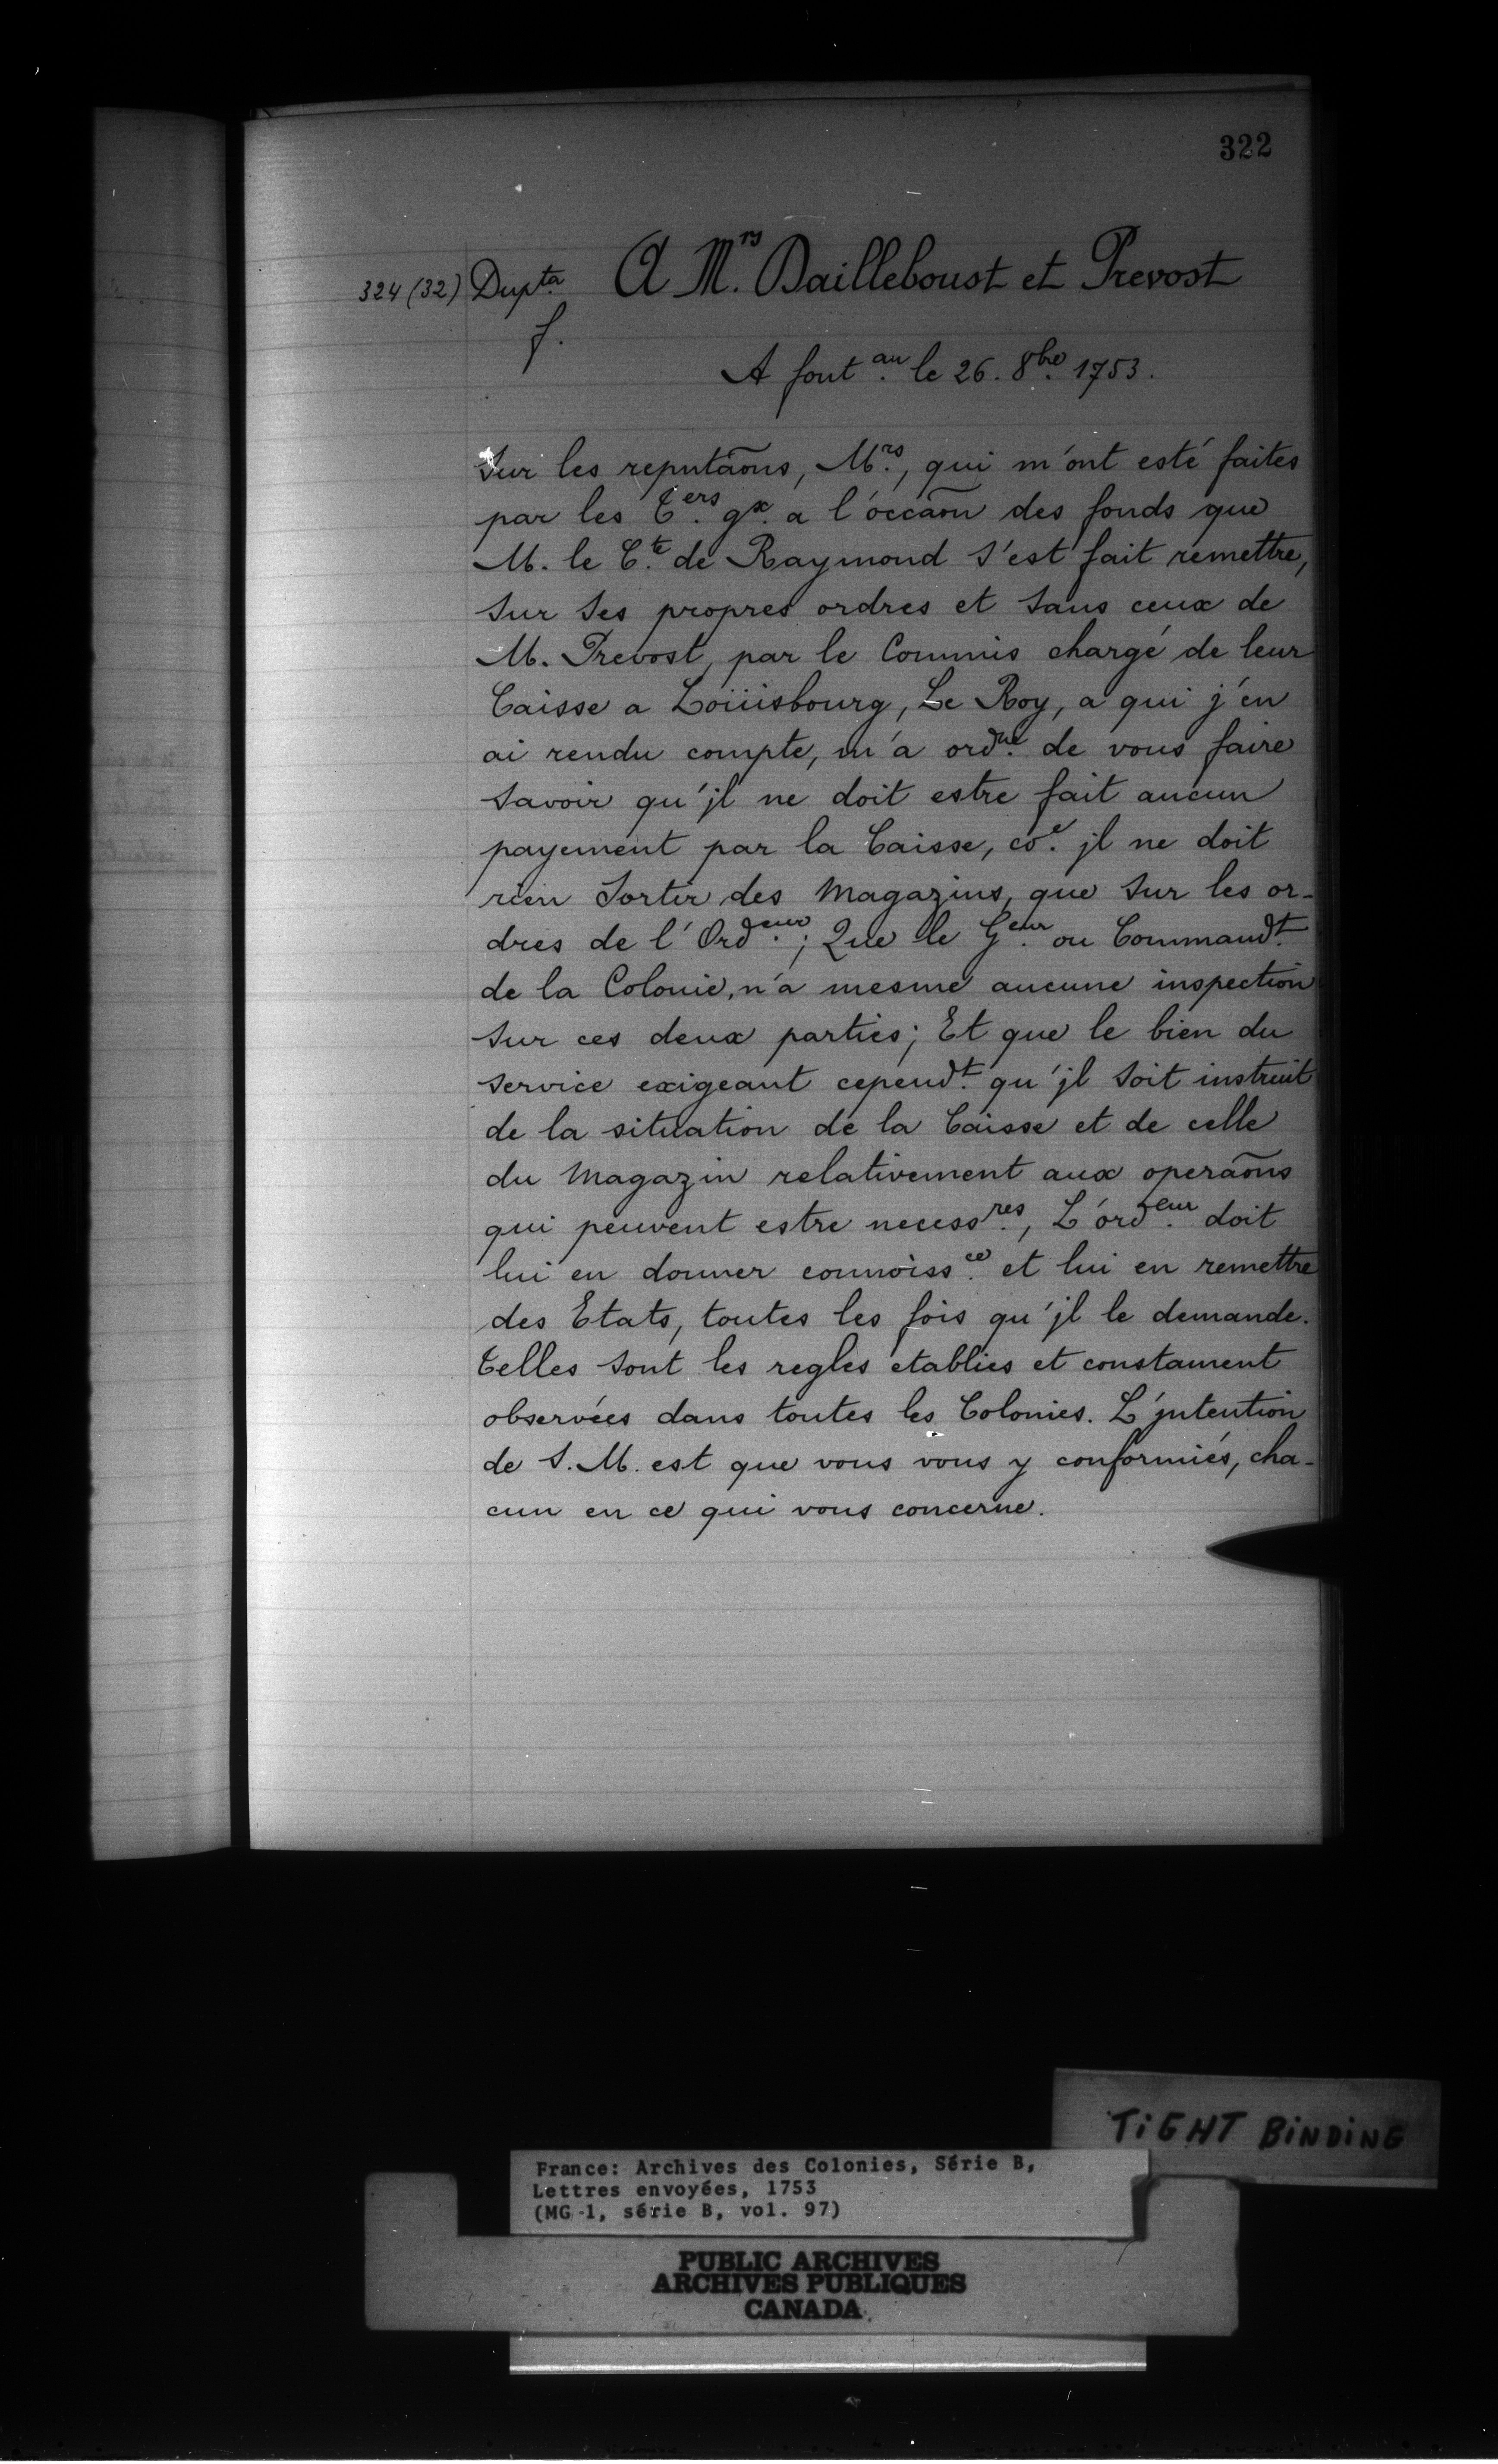 322
324 (32) Dupta A M.rs Dailleboust et Prevost
f.
A font.au le 26. 8bre. 1753.
Sur les reputãons, M.rs, qui m'ont esté faites
par les T.ers gx. a l'occãon des fonds que
M. le C.te de Raymond s'est fait remettre,
sur ses propres ordres et sans ceux de
M. Prevost, par le Commis chargé de leur
Caisse a Loüisbourg, Le Roy, a qui j'en
ai rendu compte, m'a ordné. de vous faire
savoir qu'jl ne doit estre fait aucun
payement par la Caisse, coe. jl ne doit
rien Sortir des Magazins, que sur les or-
dres de l'Ord.eur; Que le G.eur ou Command.t
de la Colonie, n'a mesme aucune inspection
sur ces deux parties; Et que le bien du
service exigeant cepend.t qu'jl soit instruit
de la situation de la Caisse et de celle
du Magazin relativement aux operãons
qui peuvent estre necess.res, L'ord.eur doit
lui en donner connoiss.ce et lui en remettre
des Etats, toutes les fois qu'jl le demande.
Telles sont les regles etablies et constament
observées dans toutes les Colonies. L'jntention
de S. M. est que vous vous y conformiés, cha-
cun en ce qui vous concerne.
TiGHT BiNDiNG
France: Archives des Colonies, Série B,
Lettres envoyées, 1753
(MG-1, série B, vol. 97)
PUBLIC ARCHIVES
ARCHIVES PUBLIQUES
CANADA